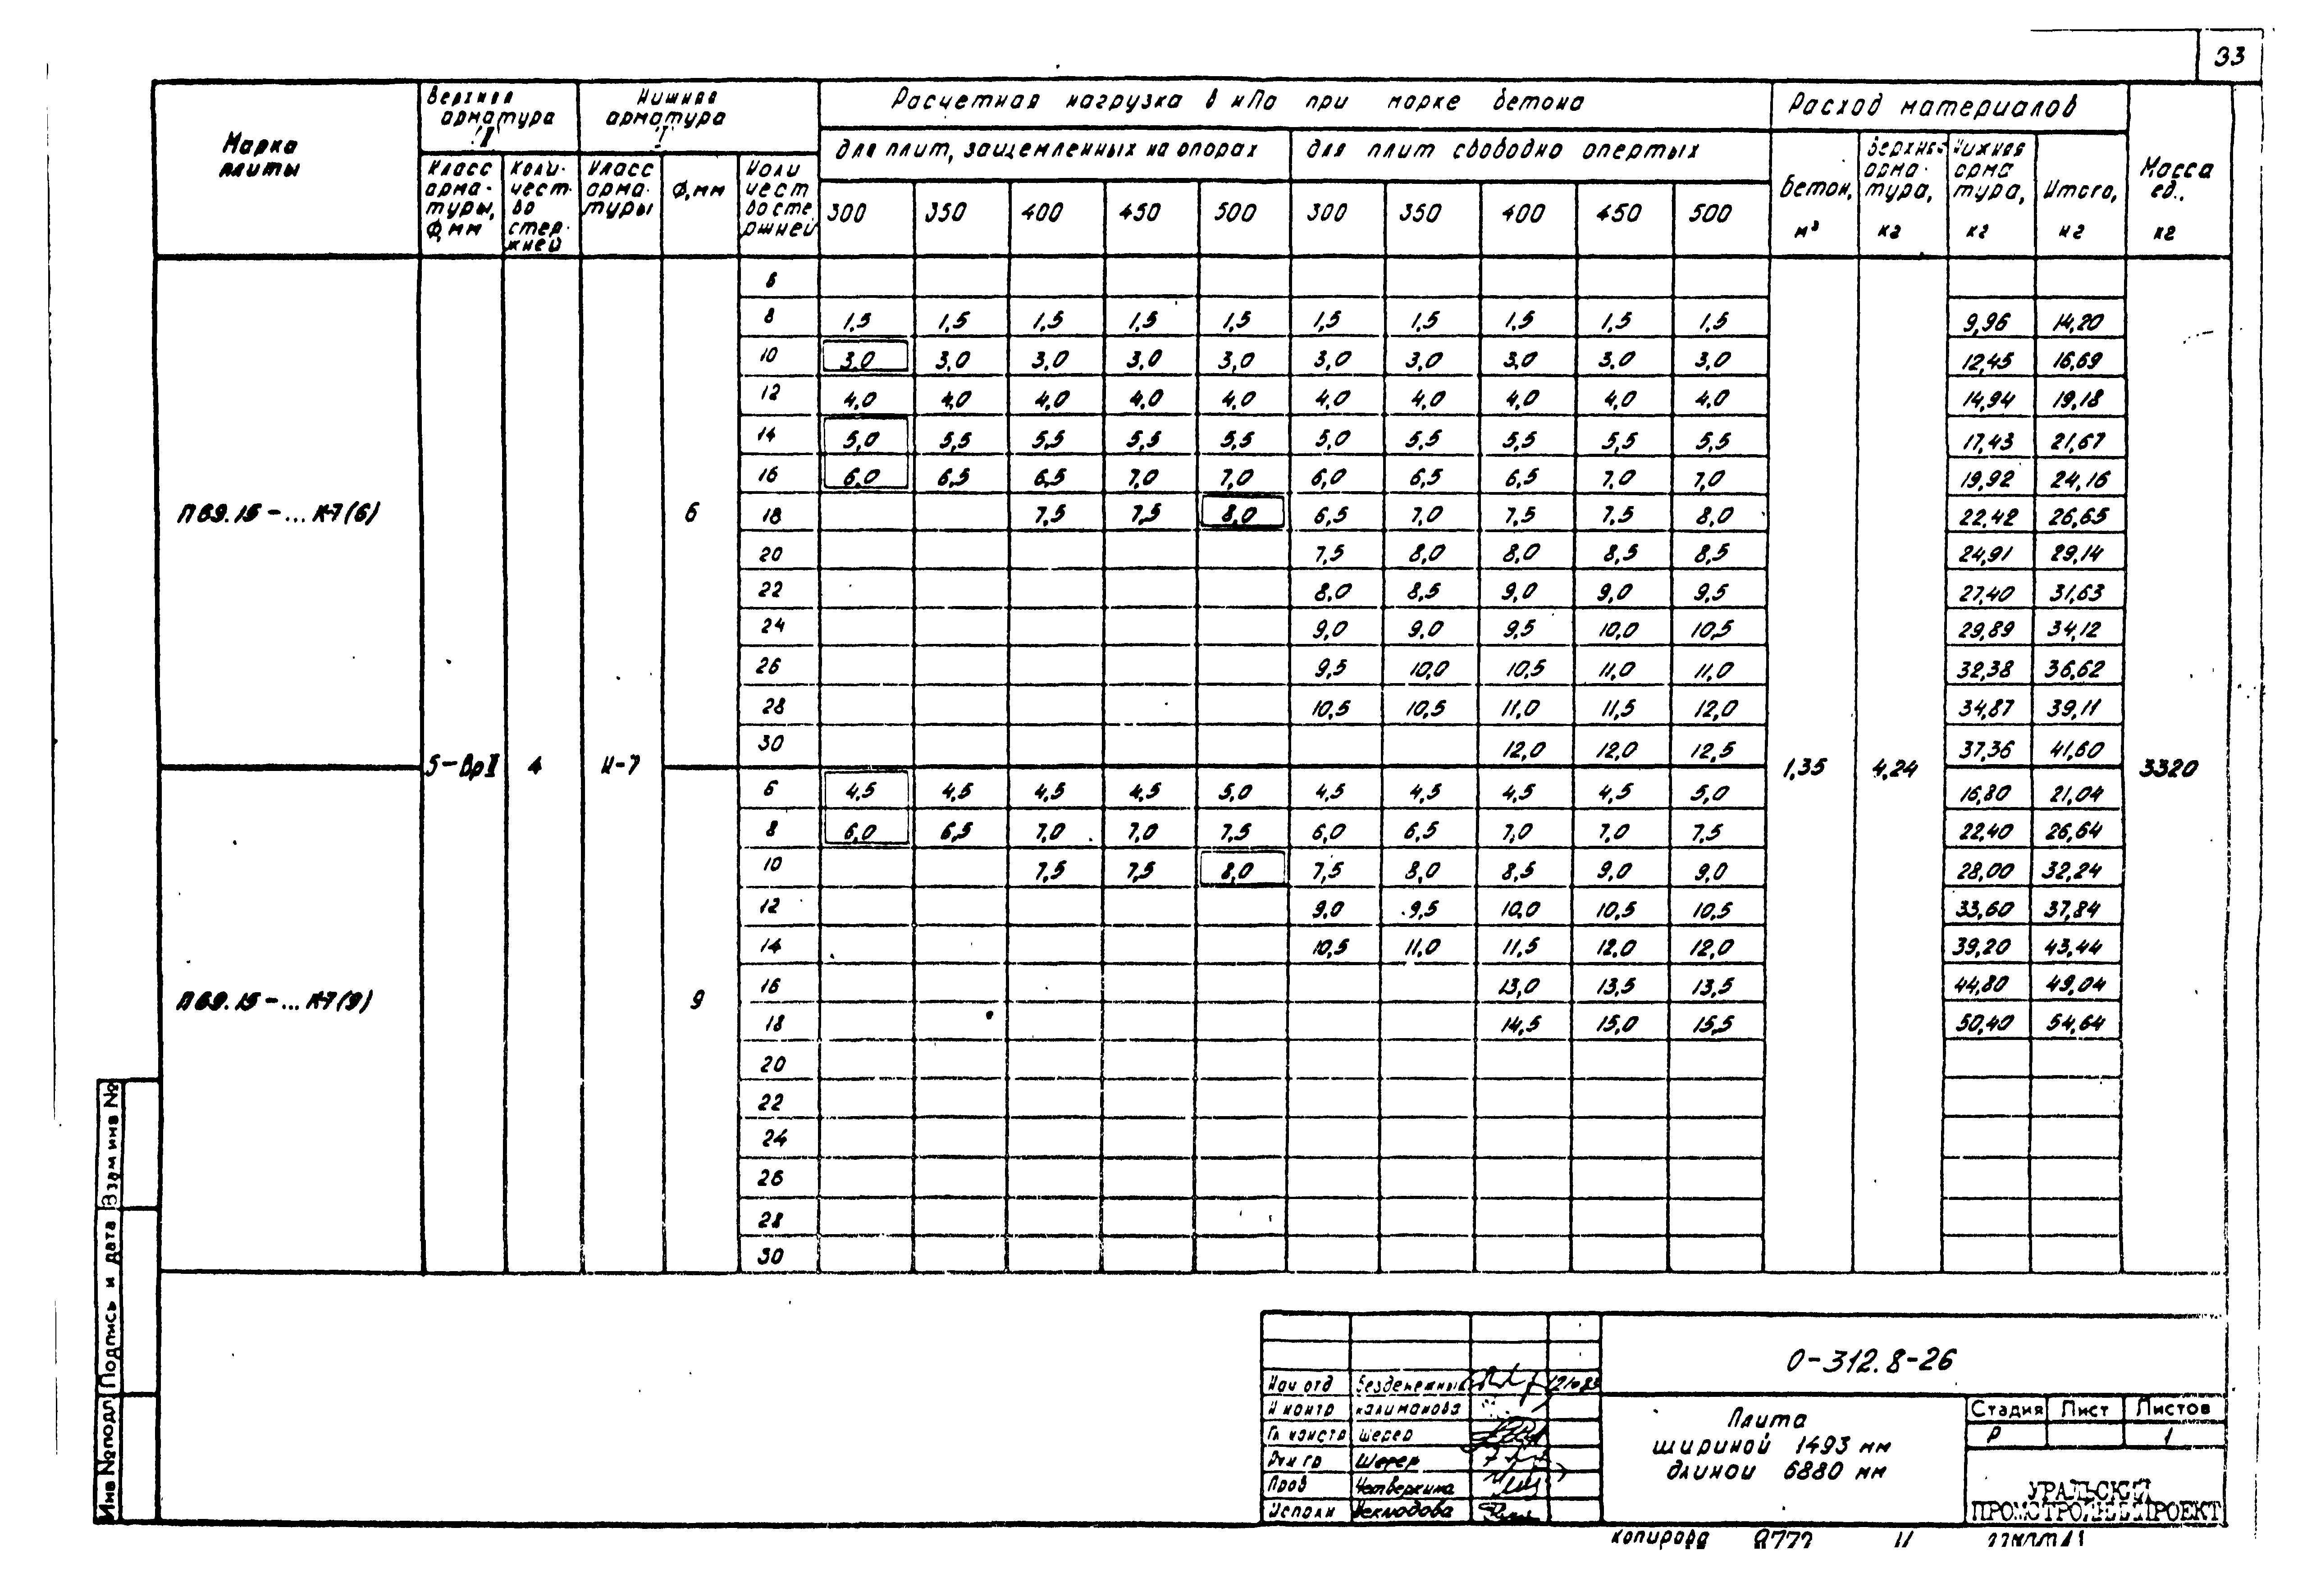 33
Марка плиты
Верхняя арматура "II"
Нижняя арматура "I"
Расчетная нагрузка в кПа при марке бетона
Расход материалов
Масса ед., кг
для плит, защемленных на опорах
для плит свободно опертых
Класс арматуры, Ф, мм
Количество стержней
Класс арматуры
Ф, мм
Количество стержней
300 350 400 450 500 300 350 400 450 500
Бетон, м³
Верхняя арматура, кг
Нижняя арматура, кг
Итого, кг
6
8 1,5 1,5 1,5 1,5 1,5 1,5 1,5 1,5 1,5 1,5 9,96 14,20
10 3,0 3,0 3,0 3,0 3,0 3,0 3,0 3,0 3,0 3,0 12,45 16,69
12 4,0 4,0 4,0 4,0 4,0 4,0 4,0 4,0 4,0 4,0 14,94 19,18
14 5,0 5,5 5,5 5,5 5,5 5,0 5,5 5,5 5,5 5,5 17,43 21,67
16 6,0 6,5 6,5 7,0 7,0 6,0 6,5 6,5 7,0 7,0 19,92 24,16
П69.15-... К-7(6) 6 18 7,5 7,5 8,0 6,5 7,0 7,5 7,5 8,0 22,42 26,65
20 7,5 8,0 8,0 8,5 8,5 24,91 29,14
22 8,0 8,5 9,0 9,0 9,5 27,40 31,63
24 9,0 9,0 9,5 10,0 10,5 29,89 34,12
26 9,5 10,0 10,5 11,0 11,0 32,38 36,62
28 10,5 10,5 11,0 11,5 12,0 34,87 39,11
30 12,0 12,0 12,5 37,36 41,60
5-ВрII 4 К-7 1,35 4,24 3320
6 4,5 4,5 4,5 4,5 5,0 4,5 4,5 4,5 4,5 5,0 16,80 21,04
8 6,0 6,5 7,0 7,0 7,5 6,0 6,5 7,0 7,0 7,5 22,40 26,64
10 7,5 7,5 8,0 7,5 8,0 8,5 9,0 9,0 28,00 32,24
12 9,0 9,5 10,0 10,5 10,5 33,60 37,84
14 10,5 11,0 11,5 12,0 12,0 39,20 43,44
П69.15-... К-7(9) 9 16 13,0 13,5 13,5 44,80 49,04
18 14,5 15,0 15,5 50,40 54,64
20
22
24
26
28
30
Взам инв №
Подпись и дата
Инв № подл
0-312.8-26
Нач отд
Н контр Калиманова
Гл констр Шерер
Рук гр Шерер
Пров Четверкина
Исполн Неклюдова
Плита
шириной 1493 мм
длиной 6880 мм
Стадия Лист Листов
Р 1
УРАЛЬСКИЙ
ПРОМСТРОЙНИИПРОЕКТ
Копировал